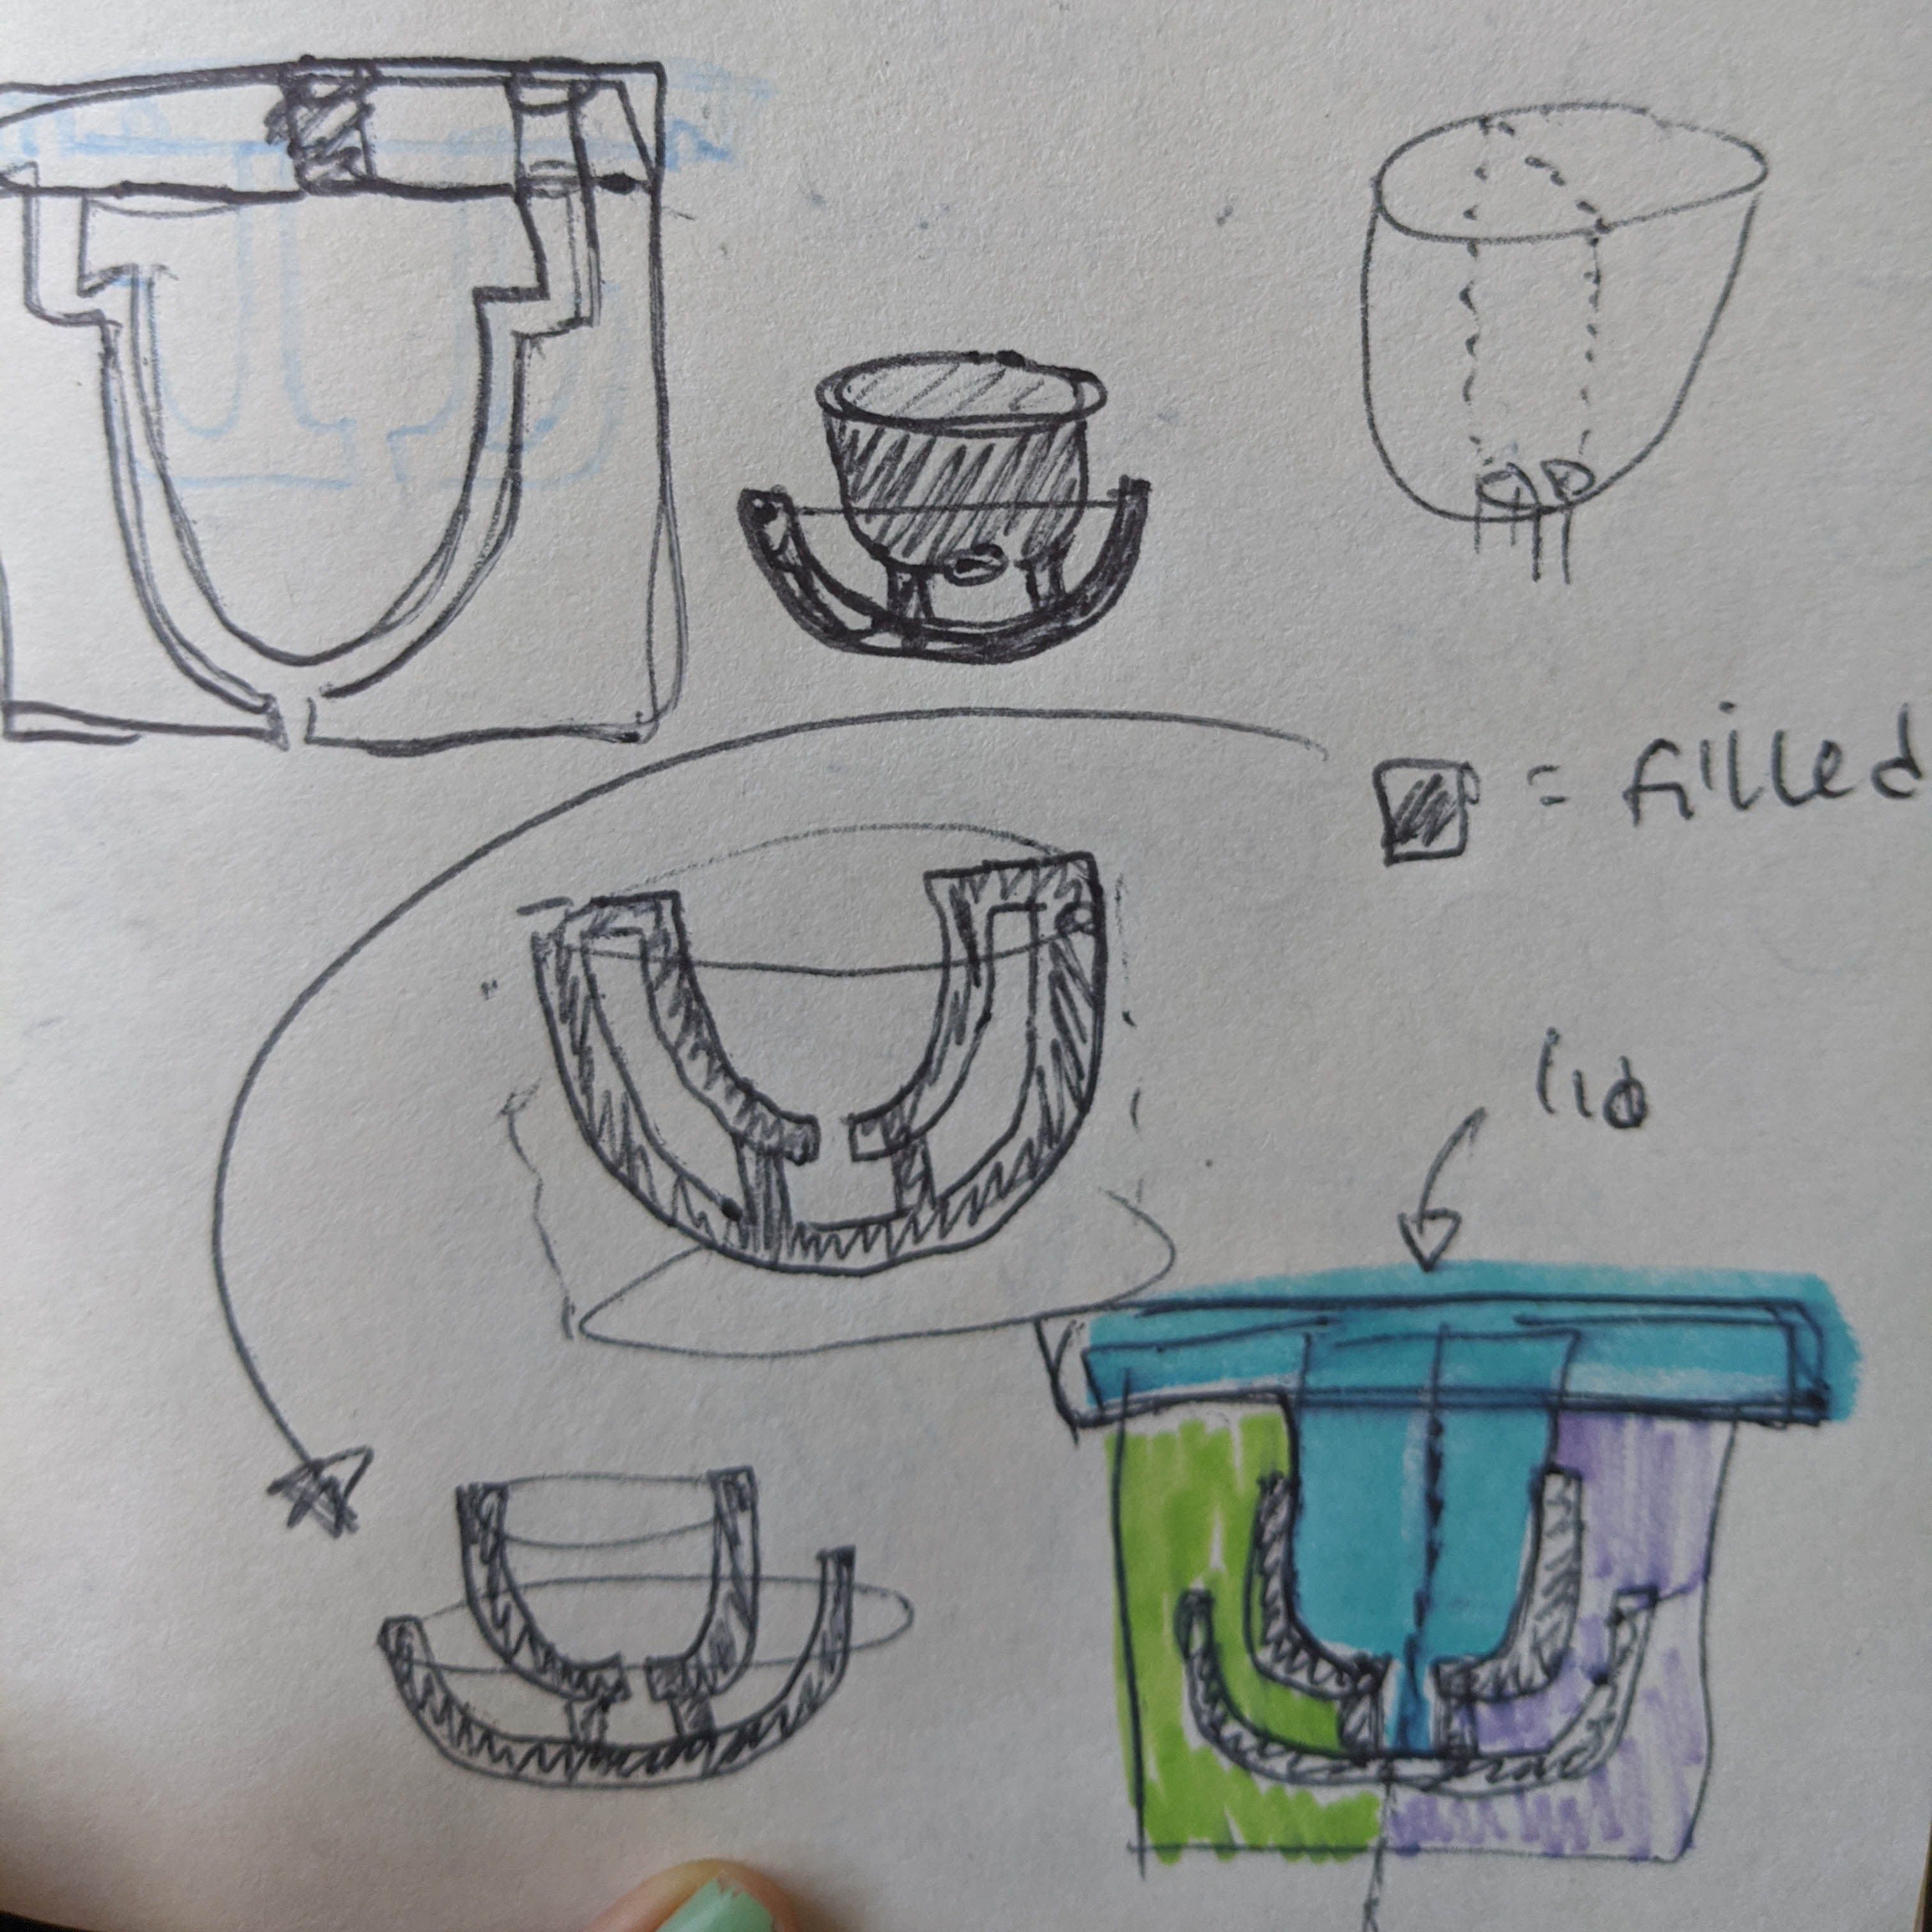 = filled
lid